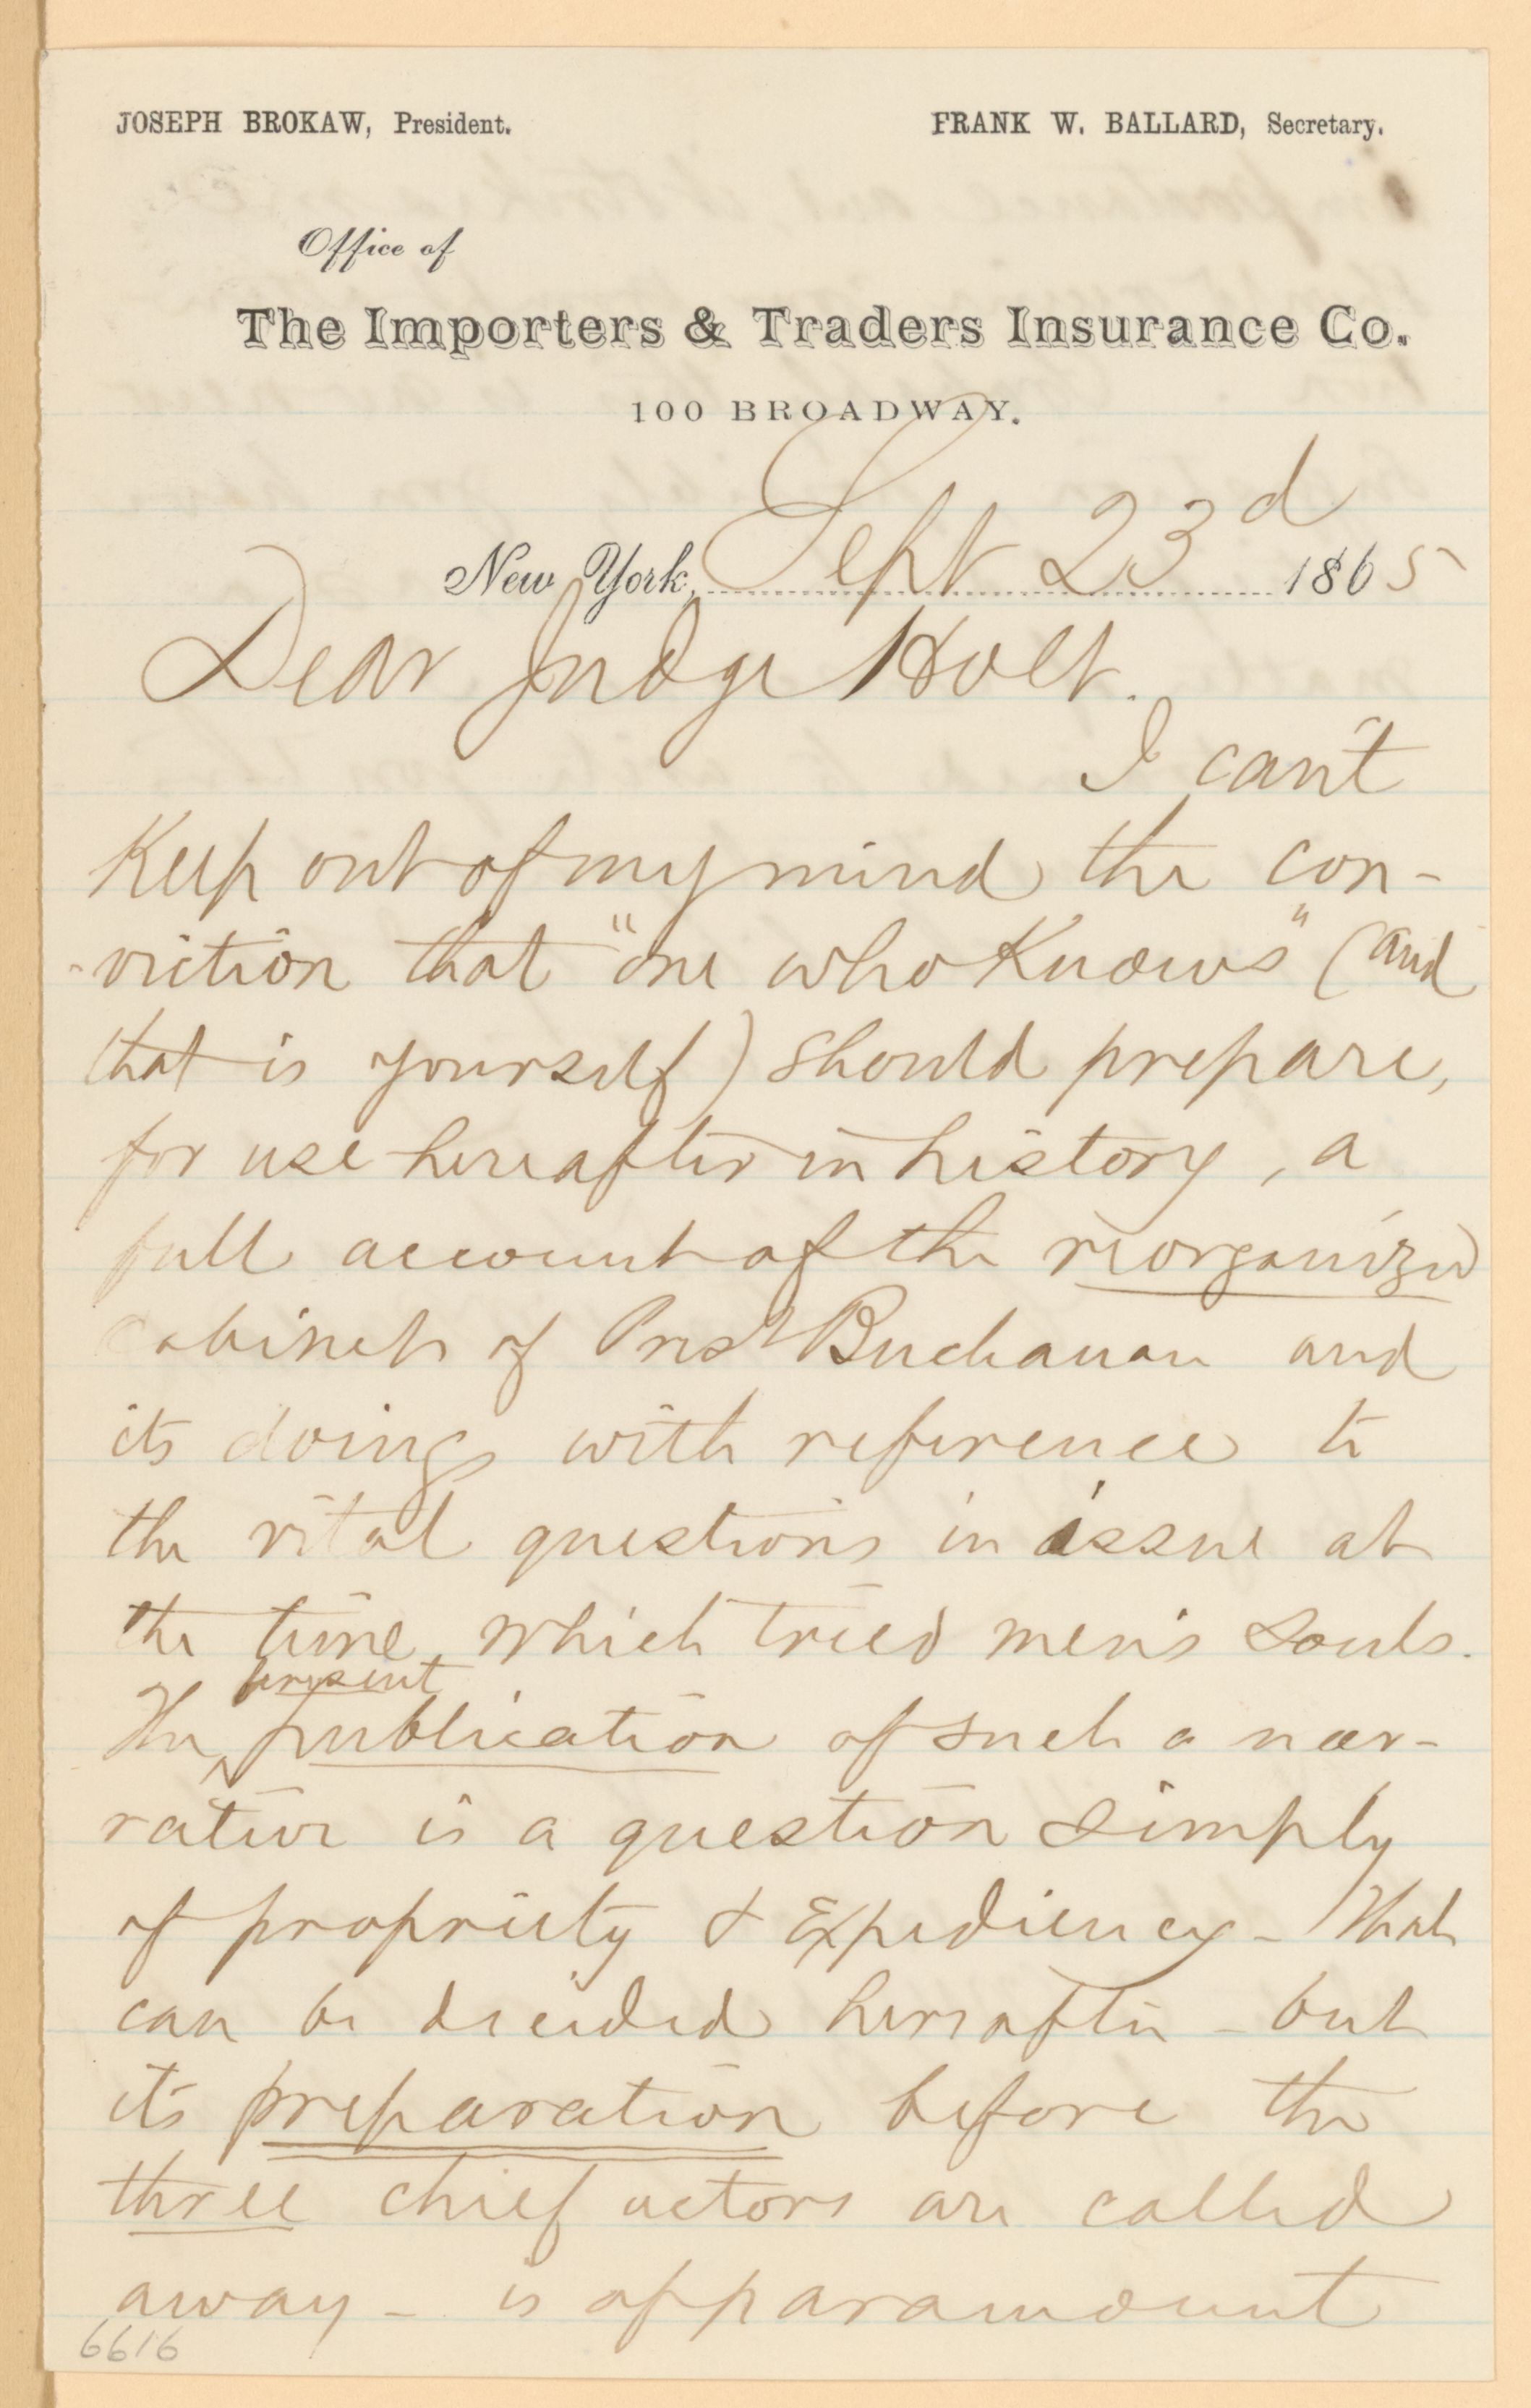 JOSEPH BROKAW, President. FRANK W. BALLARD, Secretary.
Office of
The Importers & Traders Insurance Co.
100 BROADWAY.
New York, Sept 23d 1865
Dear Judge Holt.
I can't
Keep out of my mind the con-
-viction that "one who Knows" (and
that is yourself) should prepare,
for use hereafter in history, a
full account of the reorganized
Cabinet of Prest Buchanan and
its doings with reference to
the vital questions in issue at
the time which tried men's souls.
present
The publication of such a nar-
rative is a question simply
of propriety & Expediency - That
can be decided hereafter - but
its preparation before the
three chief actors are called
away - is of paramount
6616